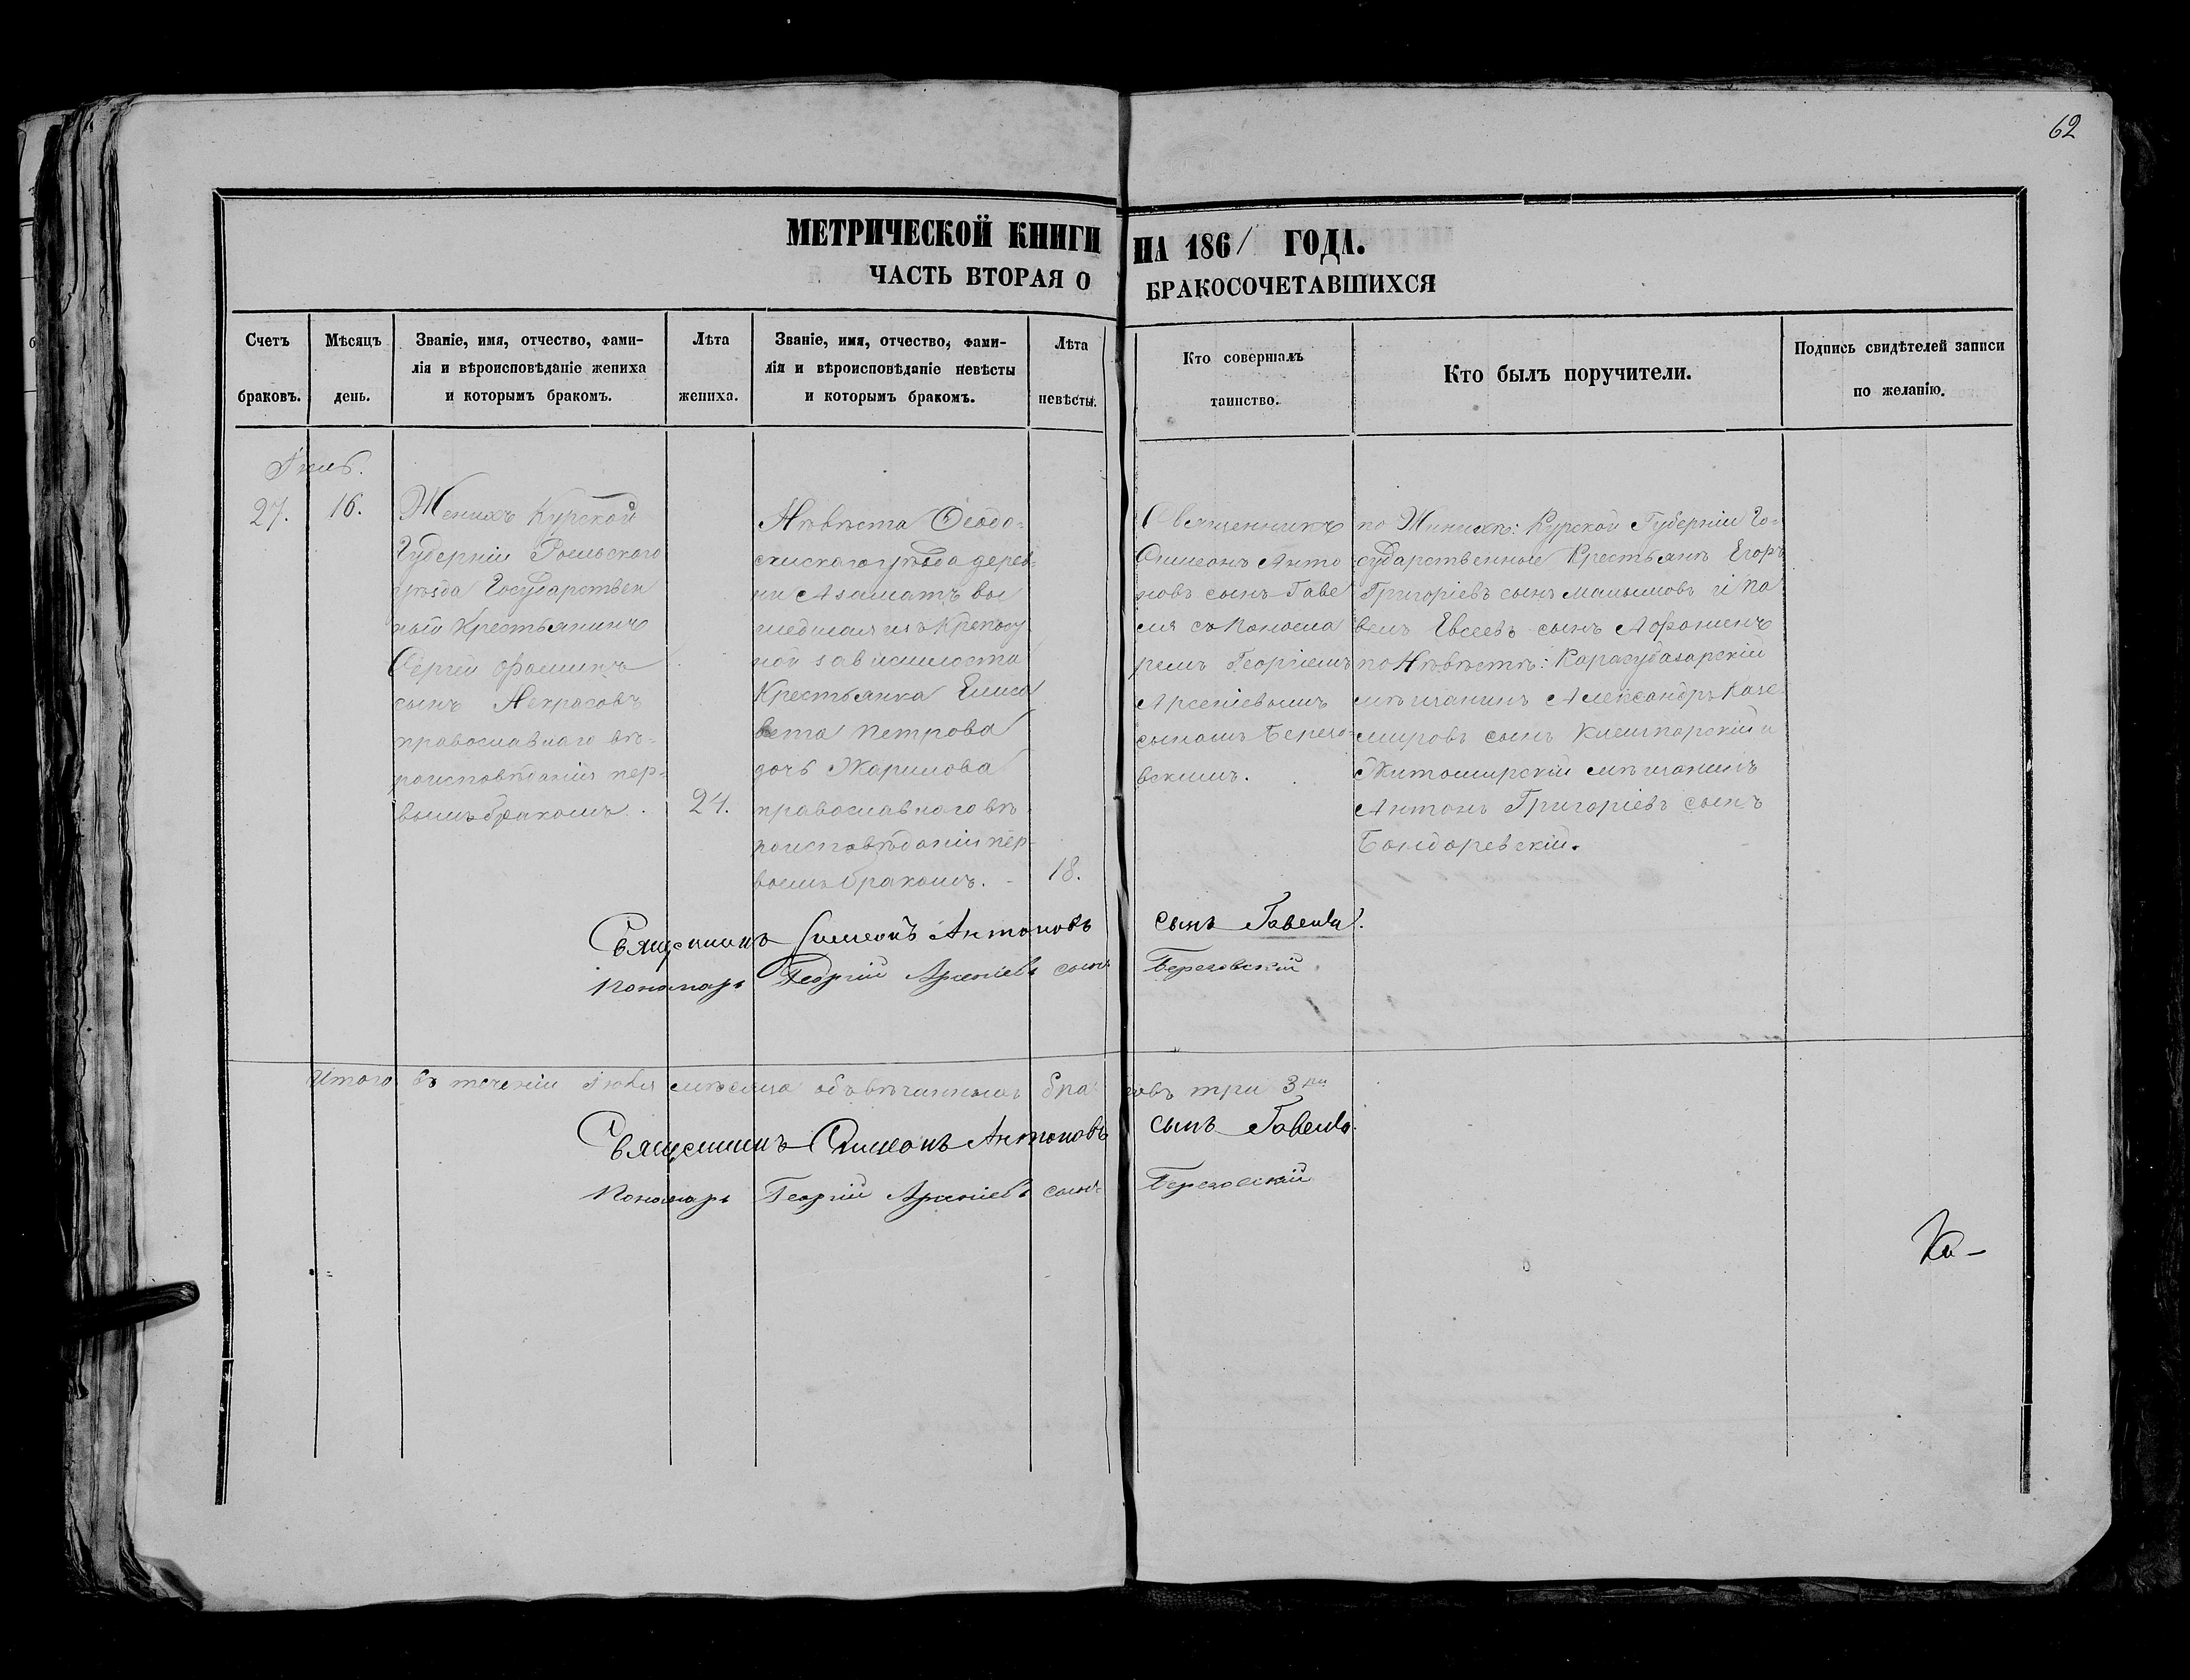 62
МЕТРИЧЕСКОЙ КНИГИ НА 1861 ГОДА.
ЧАСТЬ ВТОРАЯ О БРАКОСОЧЕТАВШИХСЯ
Счетъ браковъ.
Мѣсяцъ день.
Званіе, имя, отчество, фами-
лія и вѣроисповѣданіе жениха
и которымъ бракомъ.
Лѣта жениха.
Званіе, имя, отчество, фами-
лія и вѣроисповѣданіе невѣсты
и которымъ бракомъ.
Лѣта невѣсты.
Кто совершалъ
таинство.
Кто былъ поручители.
Подпись свидѣтелей записи
по желанію.
Іюль.
27.
16.
Женихъ Курской
Губерніи Рыльского
уѣзда Государствен
ный Крестьянинъ
Сергій Фоминъ
сынъ Некрасовъ
православнаго вѣ-
роисповѣданія пер-
вымъ бракомъ.
24.
Невѣста Ѳеодо-
сійскаго уѣзда дерев-
ни Азаматъ вы
шедшая изъ Крепост
ной зависимости
Крестьянка Елиса
вета Петрова
дочь Жарикова
православного вѣ-
роисповѣданія пер-
вымъ бракомъ.
18.
Священникъ
Симеонъ Анто
новъ сынъ Гаве
ля съ Понома
ремъ Георгіемъ
Арсеніевымъ
сыномъ Березо-
вскимъ.
по Жинихѣ: Курской Губерніи Го-
сударственные Крестьянѣ Егоръ
Григоріевъ сынъ и Па
велъ Евсеевъ сынъ Афонинъ
по Невѣстѣ: Карасубазарскій
мѣщанинъ Александръ Казе-
мировъ сынъ и
Житомирскій мѣщанинъ
Антонъ Григоріевъ сынъ
Бондаревскій.
Священникъ Симеонъ Антоновъ сынъ Гавеля.
Пономарь Георгій Арсеніевъ сынъ Березовскій.
Итого въ теченіи Іюля мѣсяца обвѣнчанныхъ браковъ три 3ри
Священникъ Симеонъ Антоновъ сынъ Гавеля.
Пономарь Георгій Арсеніевъ сынъ Березовскій